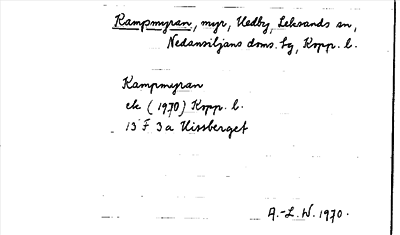 Kampmyran, myr, Hedby, Leksands sn,
Nedansiljans doms. hg, Kopp. l.
Kampmyran
ek (1970) Kopp. l.
13 F 3a Uissberget
A.-L. W. 1970.